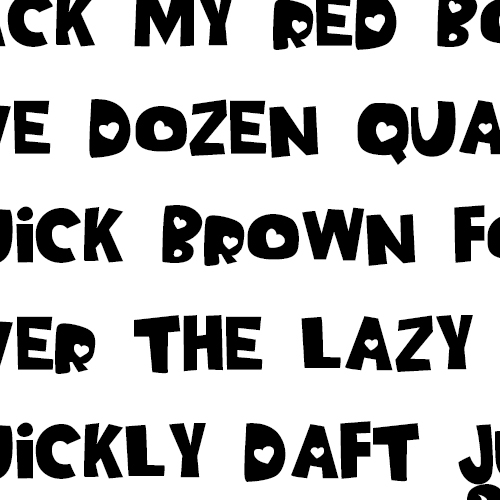 ACK MY RED BO
VE DOZEN QUA
UiCK BROWN FO
VER THE LAZY
UiCKLY DAFT JU